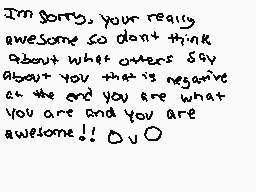 Im sorry, your really
awesome so dont think
about what others say
about you that is negative
at the end you are what
you are and you are
awesome!! OvO